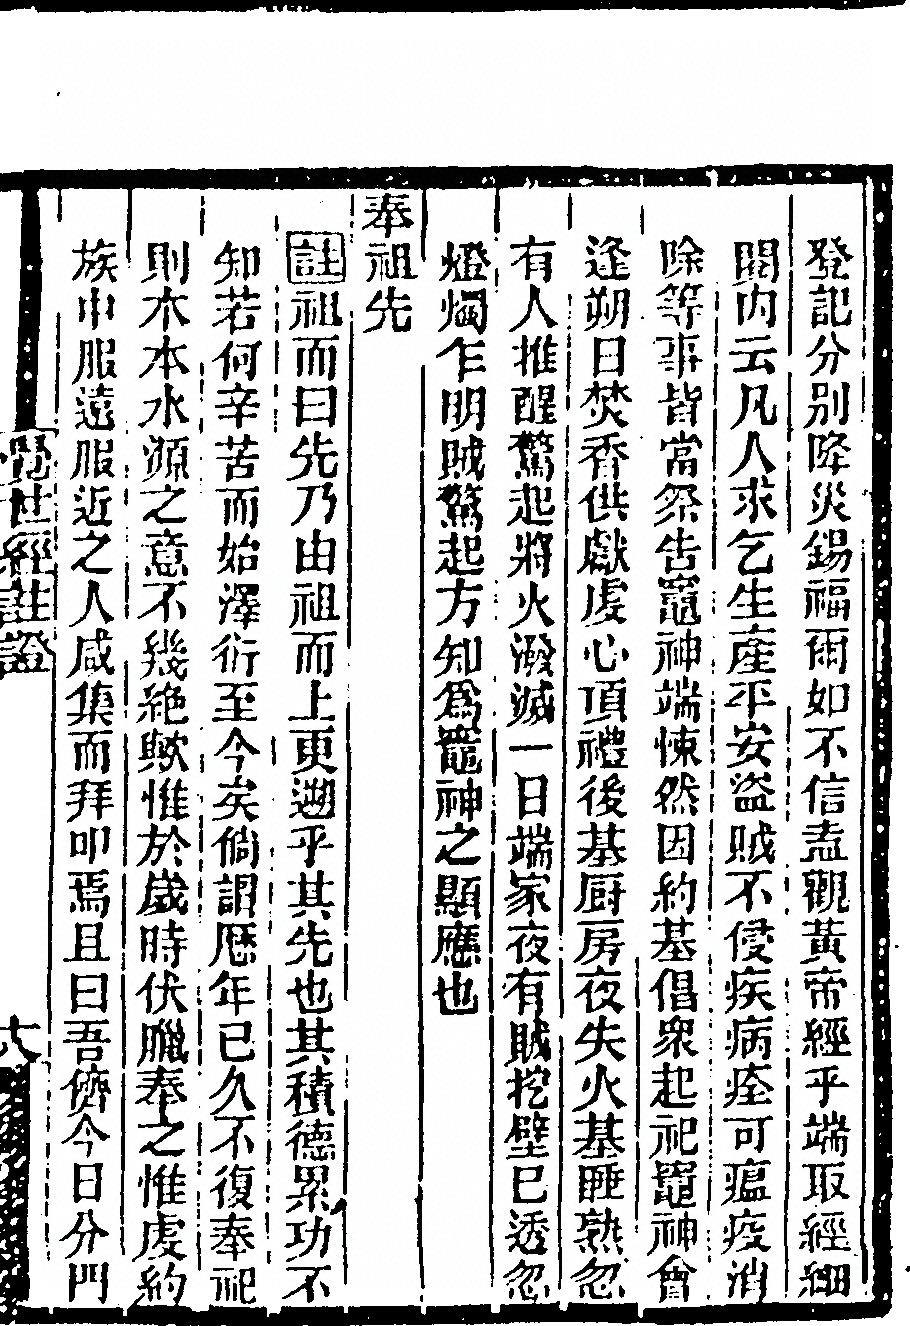 登記分别降災錫福爾如不信盍觀黃帝經乎端取經細
閱內云凡人求乞生產平安盜賊不侵疾病痊可瘟疫消
除等事皆當祭告竈神端悚然因約基倡衆起祀竈神會
逢朔日焚香供獻虔心頂禮後基厨房夜失火基睡熟忽
有人推醒驚起將火潑滅一日端家夜有賊挖壁已透忽
燈燭乍明賊驚起方知爲竈神之顯應也
奉祖先
註祖而曰先乃由祖而上更遡乎其先也其積德累功不
知若何辛苦而始澤衍至今矣倘謂歷年已久不復奉祀
則木本水源之意不幾絶歟惟於歲時伏臘奉之惟虔約
族中服遠服近之人咸集而拜叩焉且曰吾儕今日分門
覺世經註證
十八